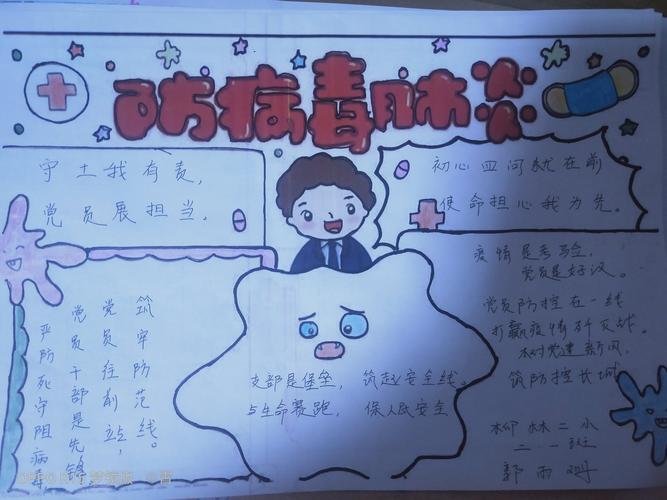 防病毒肺炎
守土我有责，
党员展担当。
初心四问就在前
使命担心我为先。
疫情是考验，
党员是好汉。
党员防控在一线
打赢疫情歼灭战。
树党建新风，
筑防控长城
筑牢防范线。
党员往前站，
党员干部是先锋
严防死守阻病毒
支部是堡垒， 筑起安全线。
与生命赛跑， 保人民安全
柳林二小
二一班
郭雨